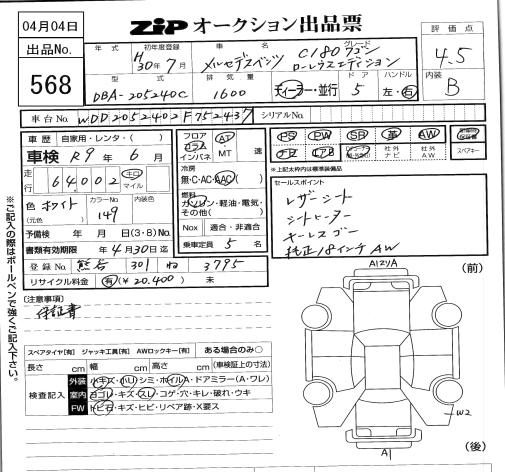 04月04日
ZIP オークション出品票
出品No.
568
年式 初年度登録 車名 グレード
H30年7月 メルセデスベンツ C180ワゴン ローレウスエディション
型式 排気量 ドア ハンドル
DBA-205240C 1600 ディーラー・並行 5 左・右
評価点
4.5
内装
B
車台No. WDD2052402F752437 シリアルNo.
車歴 自家用・レンタ・( )
車検 R9年 6月
走行 64,002 キロ マイル
色 ホワイト カラーNo. 149 内装色
(元色)
予備検 年 月 日(3・8)No.
書類有効期限 年4月30日迄
登録No. 熊谷 301 ね 3795
リサイクル料金 有(¥20,400) 未
フロア コラム インパネ AT・MT 速
冷房 無・C・AC・AAC( )
燃料 ガソリン・軽油・電気・その他( )
Nox 適合・非適合
乗車定員 5 名
PS PW SR 革 AW
ナビ エアB 社外ナビ 社外AW
スペアキー
*上記太枠内は標準装備品
セールスポイント
レザーシート
シートヒーター
キーレスゴー
純正18インチAW
(注意事項)
保証書
スペアタイヤ[有] ジャッキ工具[有] AWロックキー[有] ある場合のみ○
長さ cm 幅 cm 高さ cm (車検証上の寸法)
検査記入
外装 小キズ・小リ・シミ・ホイルA・ドアミラー(A・ワレ)
室内 ヨゴレ・キズ・スレ・コゲ・穴・キレ・破れ・ウキ
FW トビ石・キズ・ヒビ・リペア跡・X要ス
※ご記入の際はボールペンで強くご記入下さい。
(前)
A1
W2
A1
(後)